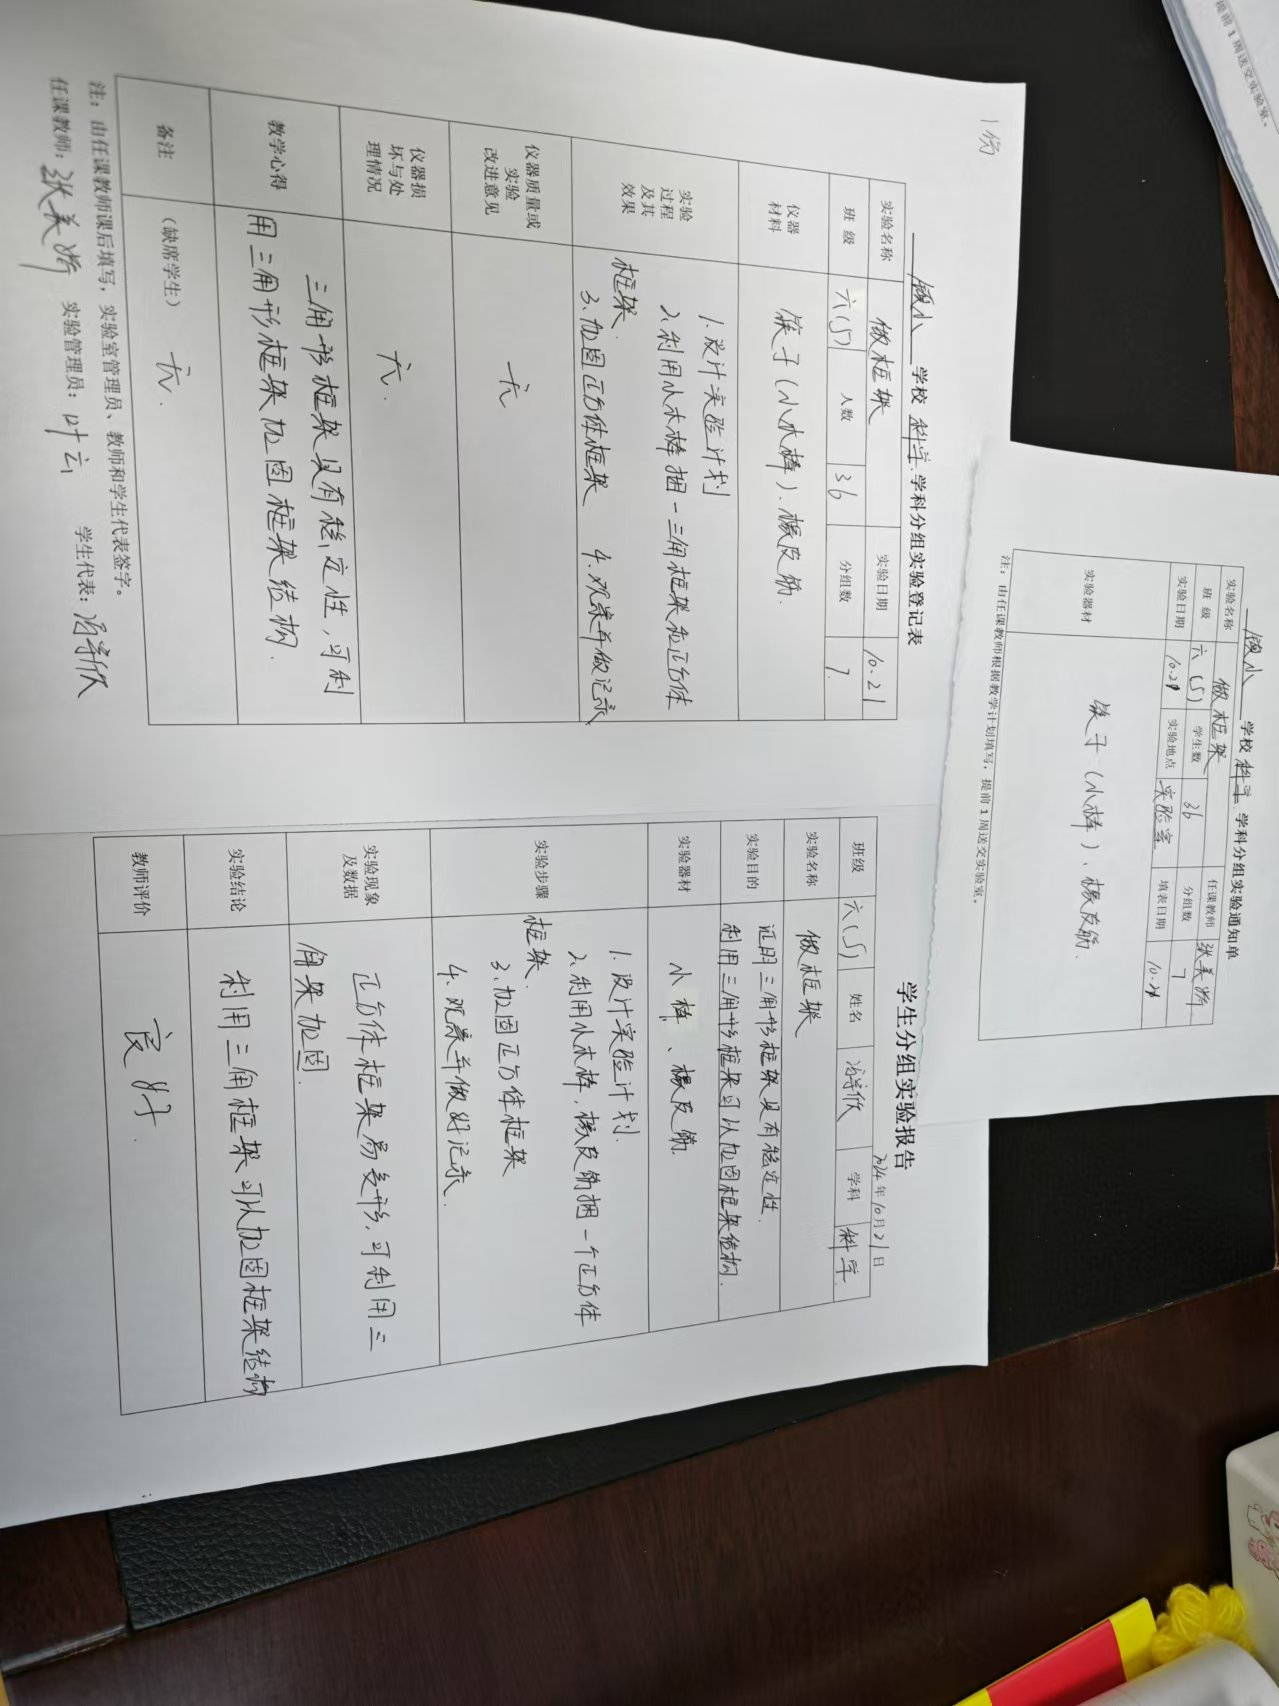 提前1周送交实验室。
1份
学校 科学 学科分组实验通知单
实验名称 做框架 任课教师 张美娇
班级 六(5) 学生数 36 分组数 7
实验日期 10.21 实验地点 实验室 填表日期
实验器材 筷子(小棒)、橡皮筋.
注：由任课教师根据教学计划填写，提前1周送交实验室。
学校 科学 学科分组实验登记表
实验名称 做框架 实验日期 10.21
班级 六(5) 人数 36 分组数 7
仪器材料 筷子(小木棒)、橡皮筋.
实验过程及其效果
1.设计实验计划
2.利用小木棒捆一三角框架和正方体
框架.
3.加固正方体框架 4.观察并做记录
仪器质量或实验改进意见 无
仪器损坏与处理情况 无.
教学心得
三角形框架具有稳定性，可利
用三角形框架加固框架结构.
备注 (缺席学生) 无.
注：由任课教师课后填写，实验室管理员、教师和学生代表签字。
任课教师：张美娇 实验管理员：叶云 学生代表：
学生分组实验报告
2024年10月21日
班级 六(5) 姓名 学科 科学
实验名称 做框架
实验目的
证明三角形框架具有稳定性.
利用三角形框架可以加固框架结构.
实验器材 小棒、橡皮筋
实验步骤
1.设计实验计划.
2.利用小木棒、橡皮筋捆一个正方体
框架.
3.加固正方体框架
4.观察并做好记录.
实验现象及数据
正方体框架易变形，可利用三
角架加固.
实验结论 利用三角框架可以加固框架结构
教师评价 良好.